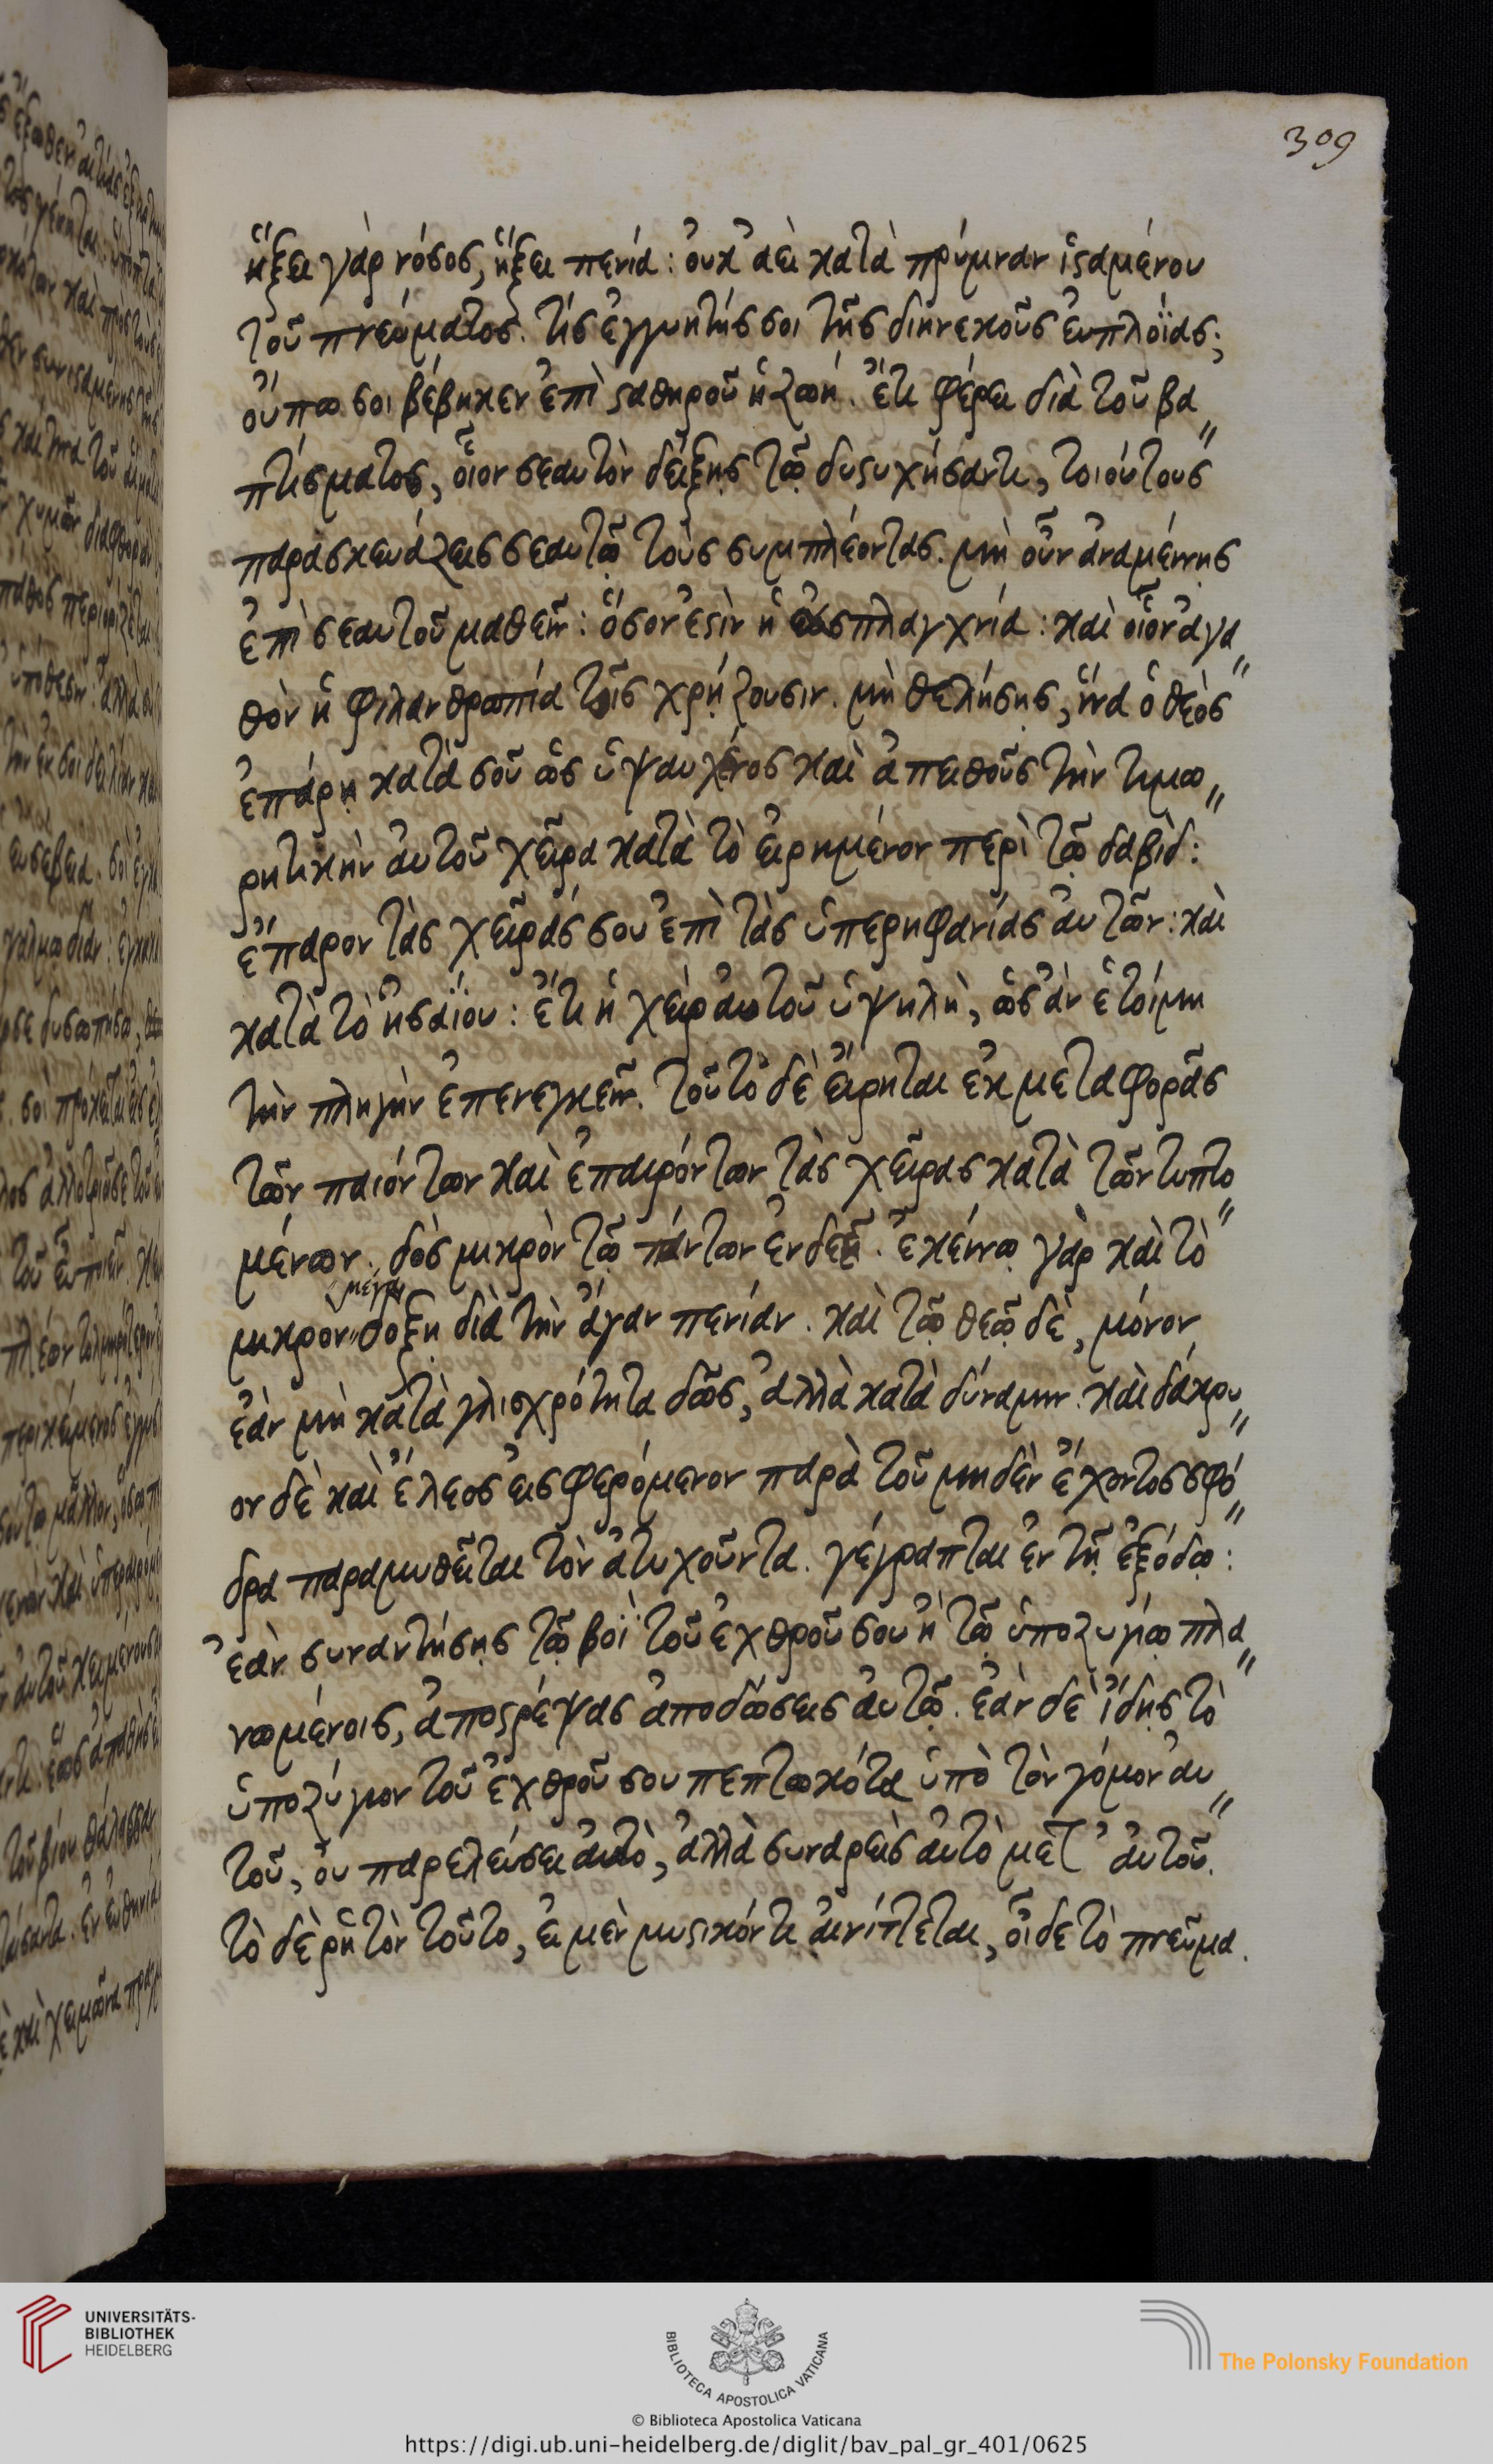 309
ἥξει γὰρ νόσος, ἥξει πενία: οὐκ ἀεὶ κατὰ πρύμναν ἱσταμένου
τοῦ πνεύματος. τίς ἐγγυητής σοι τῆς διηνεκοῦς εὐπλοΐας;
οὔπω σοι βέβηκεν ἐπὶ σταθηροῦ ἡ ζωή. ἔτι φέρει διὰ τοῦ βα〃
πτίσματος, οἷον σεαυτὸν δείξῃς τῷ δυστυχήσαντι, τοιούτους
παρασκευάζεις σεαυτῷ τοὺς συμπλέοντας. μὴ οὖν ἀναμείνῃς
ἐπὶ σεαυτοῦ μαθεῖν: ὅσον ἐστὶν ἡ εὐσπλαγχνία: καὶ οἷον ἀγα〃
θὸν ἡ φιλανθρωπία τοῖς χρῄζουσιν. μὴ θελήσῃς, ἵνα ὁ θεὸς
ἐπάρῃ κατὰ σοῦ ὡς ὑψαυχένος καὶ ἀπειθοῦς τὴν τιμω〃
ρητικὴν αὐτοῦ χεῖρα κατὰ τὸ εἰρημένον περὶ τῷ δαβίδ:
ἔπαρον τὰς χεῖράς σου ἐπὶ τὰς ὑπερηφανίας αὐτῶν: καὶ
κατὰ τὸ ἡσαΐου: ἔτι ἡ χεὶρ αὐτοῦ ὑψηλὴ, ὡς ἀν ἑτοίμη
τὴν πληγὴν ἐπενεγκεῖν. τοῦτο δὲ εἴρηται ἐκ μεταφορᾶς
τῶν παιόντων καὶ ἐπαιρόντων τὰς χεῖρας κατὰ τῶν τυπτο〃
μένων. δὸς μικρὸν τῷ πάντων ἐνδεῇ. ἐκείνῳ γὰρ καὶ τὸ
μέγα
μικρον〃δοξῃ διὰ τὴν ἄγαν πενίαν. καὶ τῷ θεῷ δὲ, μόνον
ἐὰν μὴ κατὰ γλισχρότητα δῷς, ἀλλὰ κατὰ δύναμιν. καὶ δάκρυ〃
ον δὲ καὶ ἔλεος εἰσφερόμενον παρὰ τοῦ μηδὲν ἔχοντος σφό〃
δρα παραμυθεῖται τὸν ἀτυχοῦντα. γέγραπται ἐν τῇ ἐξόδῳ:
ἐὰν συναντήσῃς τῷ βοῒ τοῦ ἐχθροῦ σου ἢ τῷ ὑποζυγίῳ πλα〃
νωμένοις, ἀποστρέψας ἀποδώσεις αὐτῷ. ἐὰν δὲ ἴδῃς τὸ
ὑποζύγιον τοῦ ἐχθροῦ σου πεπτωκότα ὑπὸ τὸν γόμον αυ〃
τοῦ, οὐ παρελεύσει αὐτὸ, ἀλλὰ συναρεῖς αὐτὸ μετ' αὐτοῦ.
τὸ δὲ ῥητὸν τοῦτο, εἰ μὲν μυστικόν τι αἰνίττεται, οἶδε τὸ πνεῦμα.
UNIVERSITÄTS-
BIBLIOTHEK
HEIDELBERG
BIBLIOTECA APOSTOLICA VATICANA
The Polonsky Foundation
© Biblioteca Apostolica Vaticana
https://digi.ub.uni-heidelberg.de/diglit/bav_pal_gr_401/0625